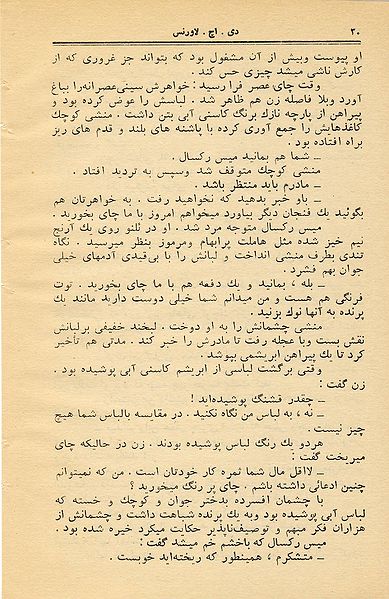 ۲۰ دی . اچ . لاورنس
او پیوست وبیش از آن مشغول بود که بتواند جز غروری که از
کارش ناشی میشد چیزی حس کند .
وقت چای عصر فرا رسید : خواهرش سینی‌عصرانه‌را بباغ
آورد وبلا فاصله زن هم ظاهر شد . لباسش را عوض کرده بود و
پیراهن از پارچه نازك برنگ کاسنی آبی بتن داشت . منشی کوچك
کاغذهایش را جمع آوری کرده با پاشنه های بلند و قدم های ریز
براه افتاده بود .
ــ شما هم بمانید میس رکسال .
منشی کوچك متوقف شد وسپس به تردید افتاد .
ــ مادرم باید منتظر باشد .
ــ باو خبر بدهید که نخواهید رفت . به خواهرتان هم
بگوئید یك فنجان دیگر بیاورد میخواهم امروز با ما چای بخورید .
میس رکسال متوجه مرد شد . او در ننوی روی یك آرنج
نیم خیز شده مثل هاملت پرابهام ومرموز بنظر میرسید . نگاه
تندی بطرف منشی انداخت و لبانش را با بی‌قیدی آدمهای خیلی
جوان بهم فشرد .
ــ بله ، بمانید و یك دفعه هم با ما چای بخورید . توت
فرنگی هم هست و من میدانم شما خیلی دوست دارید مانند یك
پرنده به آنها نوك بزنید .
منشی چشمانش را به او دوخت . لبخند خفیفی برلبانش
نقش بست وبا عجله رفت تا مادرش را خبر کند . مدتی هم تأخیر
کرد تا یك پیراهن ابریشمی بپوشد .
وقتی برگشت لباسی از ابریشم کاسنی آبی پوشیده بود .
زن گفت :
ــ چقدر قشنگ پوشیده‌اید !
ــ نه ، به لباس من نگاه نکنید . در مقایسه بالباس شما هیچ
چیز نیست .
هردو یك رنگ لباس پوشیده بودند . زن در حالیکه چای
میریخت گفت :
ــ لااقل مال شما ثمره کار خودتان است . من که نمیتوانم
چنین ادعائی داشته باشم . چای پر رنگ میخورید ؟
با چشمان افسرده بدختر جوان و کوچك و خسته که
لباس آبی پوشیده بود وبه یك پرنده شباهت داشت و چشمانش از
هزاران فکر مبهم و توصیف‌ناپذیر حکایت میکرد خیره شده بود .
میس رکسال که باخشم خم میشد گفت :
ــ متشکرم ، همینطور که ریخته‌اید خوبست .